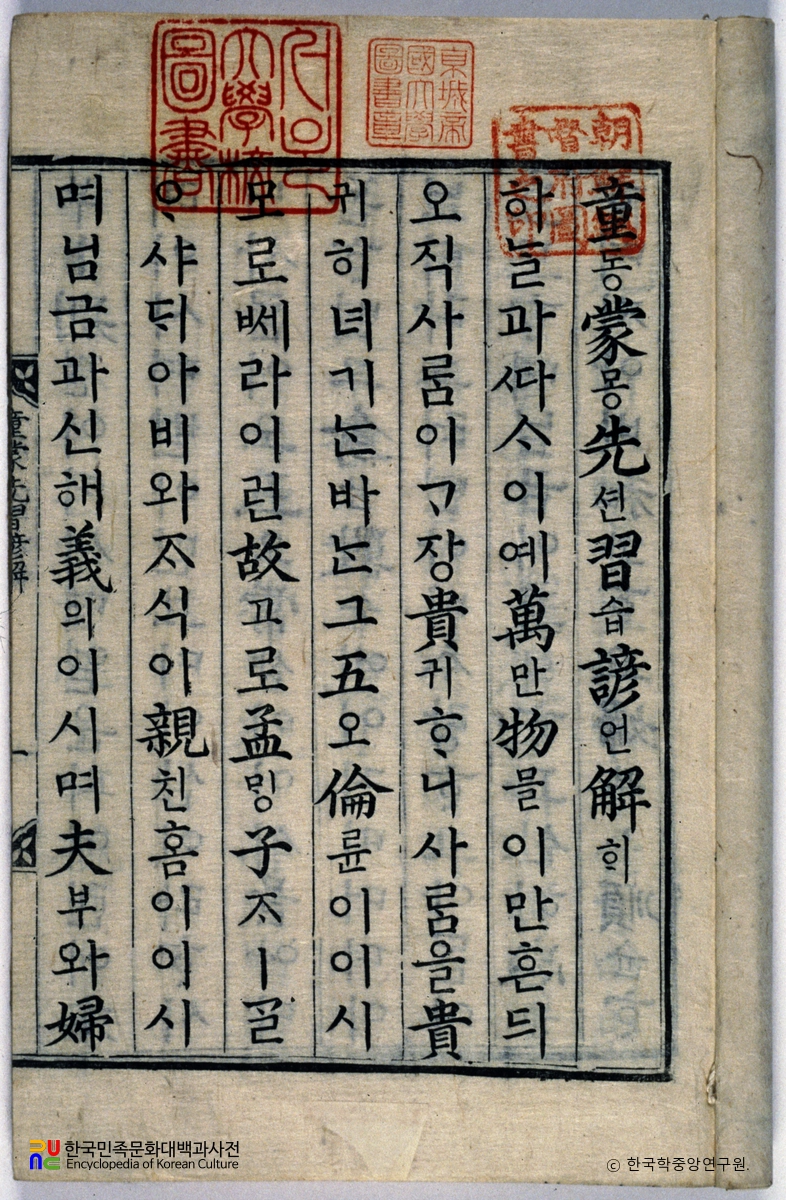 서울大學校圖書
京城帝國大學圖書章
朝鮮總督府圖書之印
童동蒙몽先션習습諺언解ᄒᆡ
하ᄂᆞᆯ과ᄯᅡᄉᆞ이예萬만物믈이만흔ᄃᆡ
오직사ᄅᆞᆷ이ᄀᆞ장貴귀ᄒᆞ니사ᄅᆞᆷ을貴
귀히녀기ᄂᆞᆫ바ᄂᆞᆫ그五오倫륜이이시
모로ᄡᅦ라이런故고로孟ᄆᆡᆼ子ᄌᆞㅣᄀᆞᆯ
ᄋᆞ샤ᄃᆡ아비와ᄌᆞ식이親친홈이이시
며님금과신해義의이시며夫부와婦
童蒙先習諺解 一
한국민족문화대백과사전
Encyclopedia of Korean Culture
© 한국학중앙연구원.